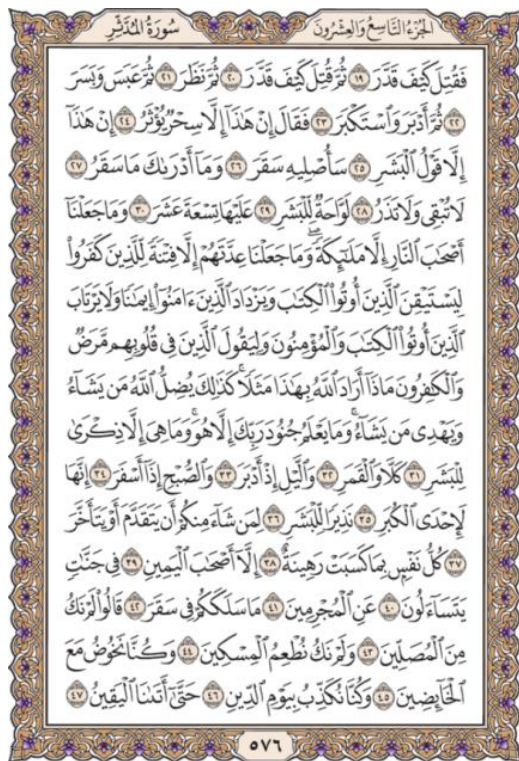 سُورَةُ المُدَّثِّر
الجُزءُ التَّاسِعُ وَالعِشْرُونَ
فَقُتِلَ كَيْفَ قَدَّرَ ١٩ ثُمَّ قُتِلَ كَيْفَ قَدَّرَ ٢٠ ثُمَّ نَظَرَ ٢١ ثُمَّ عَبَسَ وَبَسَرَ
٢٢ ثُمَّ أَدْبَرَ وَٱسْتَكْبَرَ ٢٣ فَقَالَ إِنْ هَٰذَآ إِلَّا سِحْرٌ يُؤْثَرُ ٢٤ إِنْ هَٰذَآ
إِلَّا قَوْلُ ٱلْبَشَرِ ٢٥ سَأُصْلِيهِ سَقَرَ ٢٦ وَمَآ أَدْرَىٰكَ مَا سَقَرُ ٢٧
لَا تُبْقِى وَلَا تَذَرُ ٢٨ لَوَّاحَةٌ لِّلْبَشَرِ ٢٩ عَلَيْهَا تِسْعَةَ عَشَرَ ٣٠ وَمَا جَعَلْنَآ
أَصْحَٰبَ ٱلنَّارِ إِلَّا مَلَٰٓئِكَةً ۖ وَمَا جَعَلْنَا عِدَّتَهُمْ إِلَّا فِتْنَةً لِّلَّذِينَ كَفَرُوا۟
لِيَسْتَيْقِنَ ٱلَّذِينَ أُوتُوا۟ ٱلْكِتَٰبَ وَيَزْدَادَ ٱلَّذِينَ ءَامَنُوٓا۟ إِيمَٰنًا وَلَا يَرْتَابَ
ٱلَّذِينَ أُوتُوا۟ ٱلْكِتَٰبَ وَٱلْمُؤْمِنُونَ وَلِيَقُولَ ٱلَّذِينَ فِى قُلُوبِهِم مَّرَضٌ
وَٱلْكَٰفِرُونَ مَاذَآ أَرَادَ ٱللَّهُ بِهَٰذَا مَثَلًا ۚ كَذَٰلِكَ يُضِلُّ ٱللَّهُ مَن يَشَآءُ
وَيَهْدِى مَن يَشَآءُ ۚ وَمَا يَعْلَمُ جُنُودَ رَبِّكَ إِلَّا هُوَ ۚ وَمَا هِىَ إِلَّا ذِكْرَىٰ
لِلْبَشَرِ ٣١ كَلَّا وَٱلْقَمَرِ ٣٢ وَٱلَّيْلِ إِذْ أَدْبَرَ ٣٣ وَٱلصُّبْحِ إِذَآ أَسْفَرَ ٣٤ إِنَّهَا
لَإِحْدَى ٱلْكُبَرِ ٣٥ نَذِيرًا لِّلْبَشَرِ ٣٦ لِمَن شَآءَ مِنكُمْ أَن يَتَقَدَّمَ أَوْ يَتَأَخَّرَ
٣٧ كُلُّ نَفْسٍۭ بِمَا كَسَبَتْ رَهِينَةٌ ٣٨ إِلَّآ أَصْحَٰبَ ٱلْيَمِينِ ٣٩ فِى جَنَّٰتٍ
يَتَسَآءَلُونَ ٤٠ عَنِ ٱلْمُجْرِمِينَ ٤١ مَا سَلَكَكُمْ فِى سَقَرَ ٤٢ قَالُوا۟ لَمْ نَكُ
مِنَ ٱلْمُصَلِّينَ ٤٣ وَلَمْ نَكُ نُطْعِمُ ٱلْمِسْكِينَ ٤٤ وَكُنَّا نَخُوضُ مَعَ
ٱلْخَآئِضِينَ ٤٥ وَكُنَّا نُكَذِّبُ بِيَوْمِ ٱلدِّينِ ٤٦ حَتَّىٰٓ أَتَىٰنَا ٱلْيَقِينُ ٤٧
٥٧٦